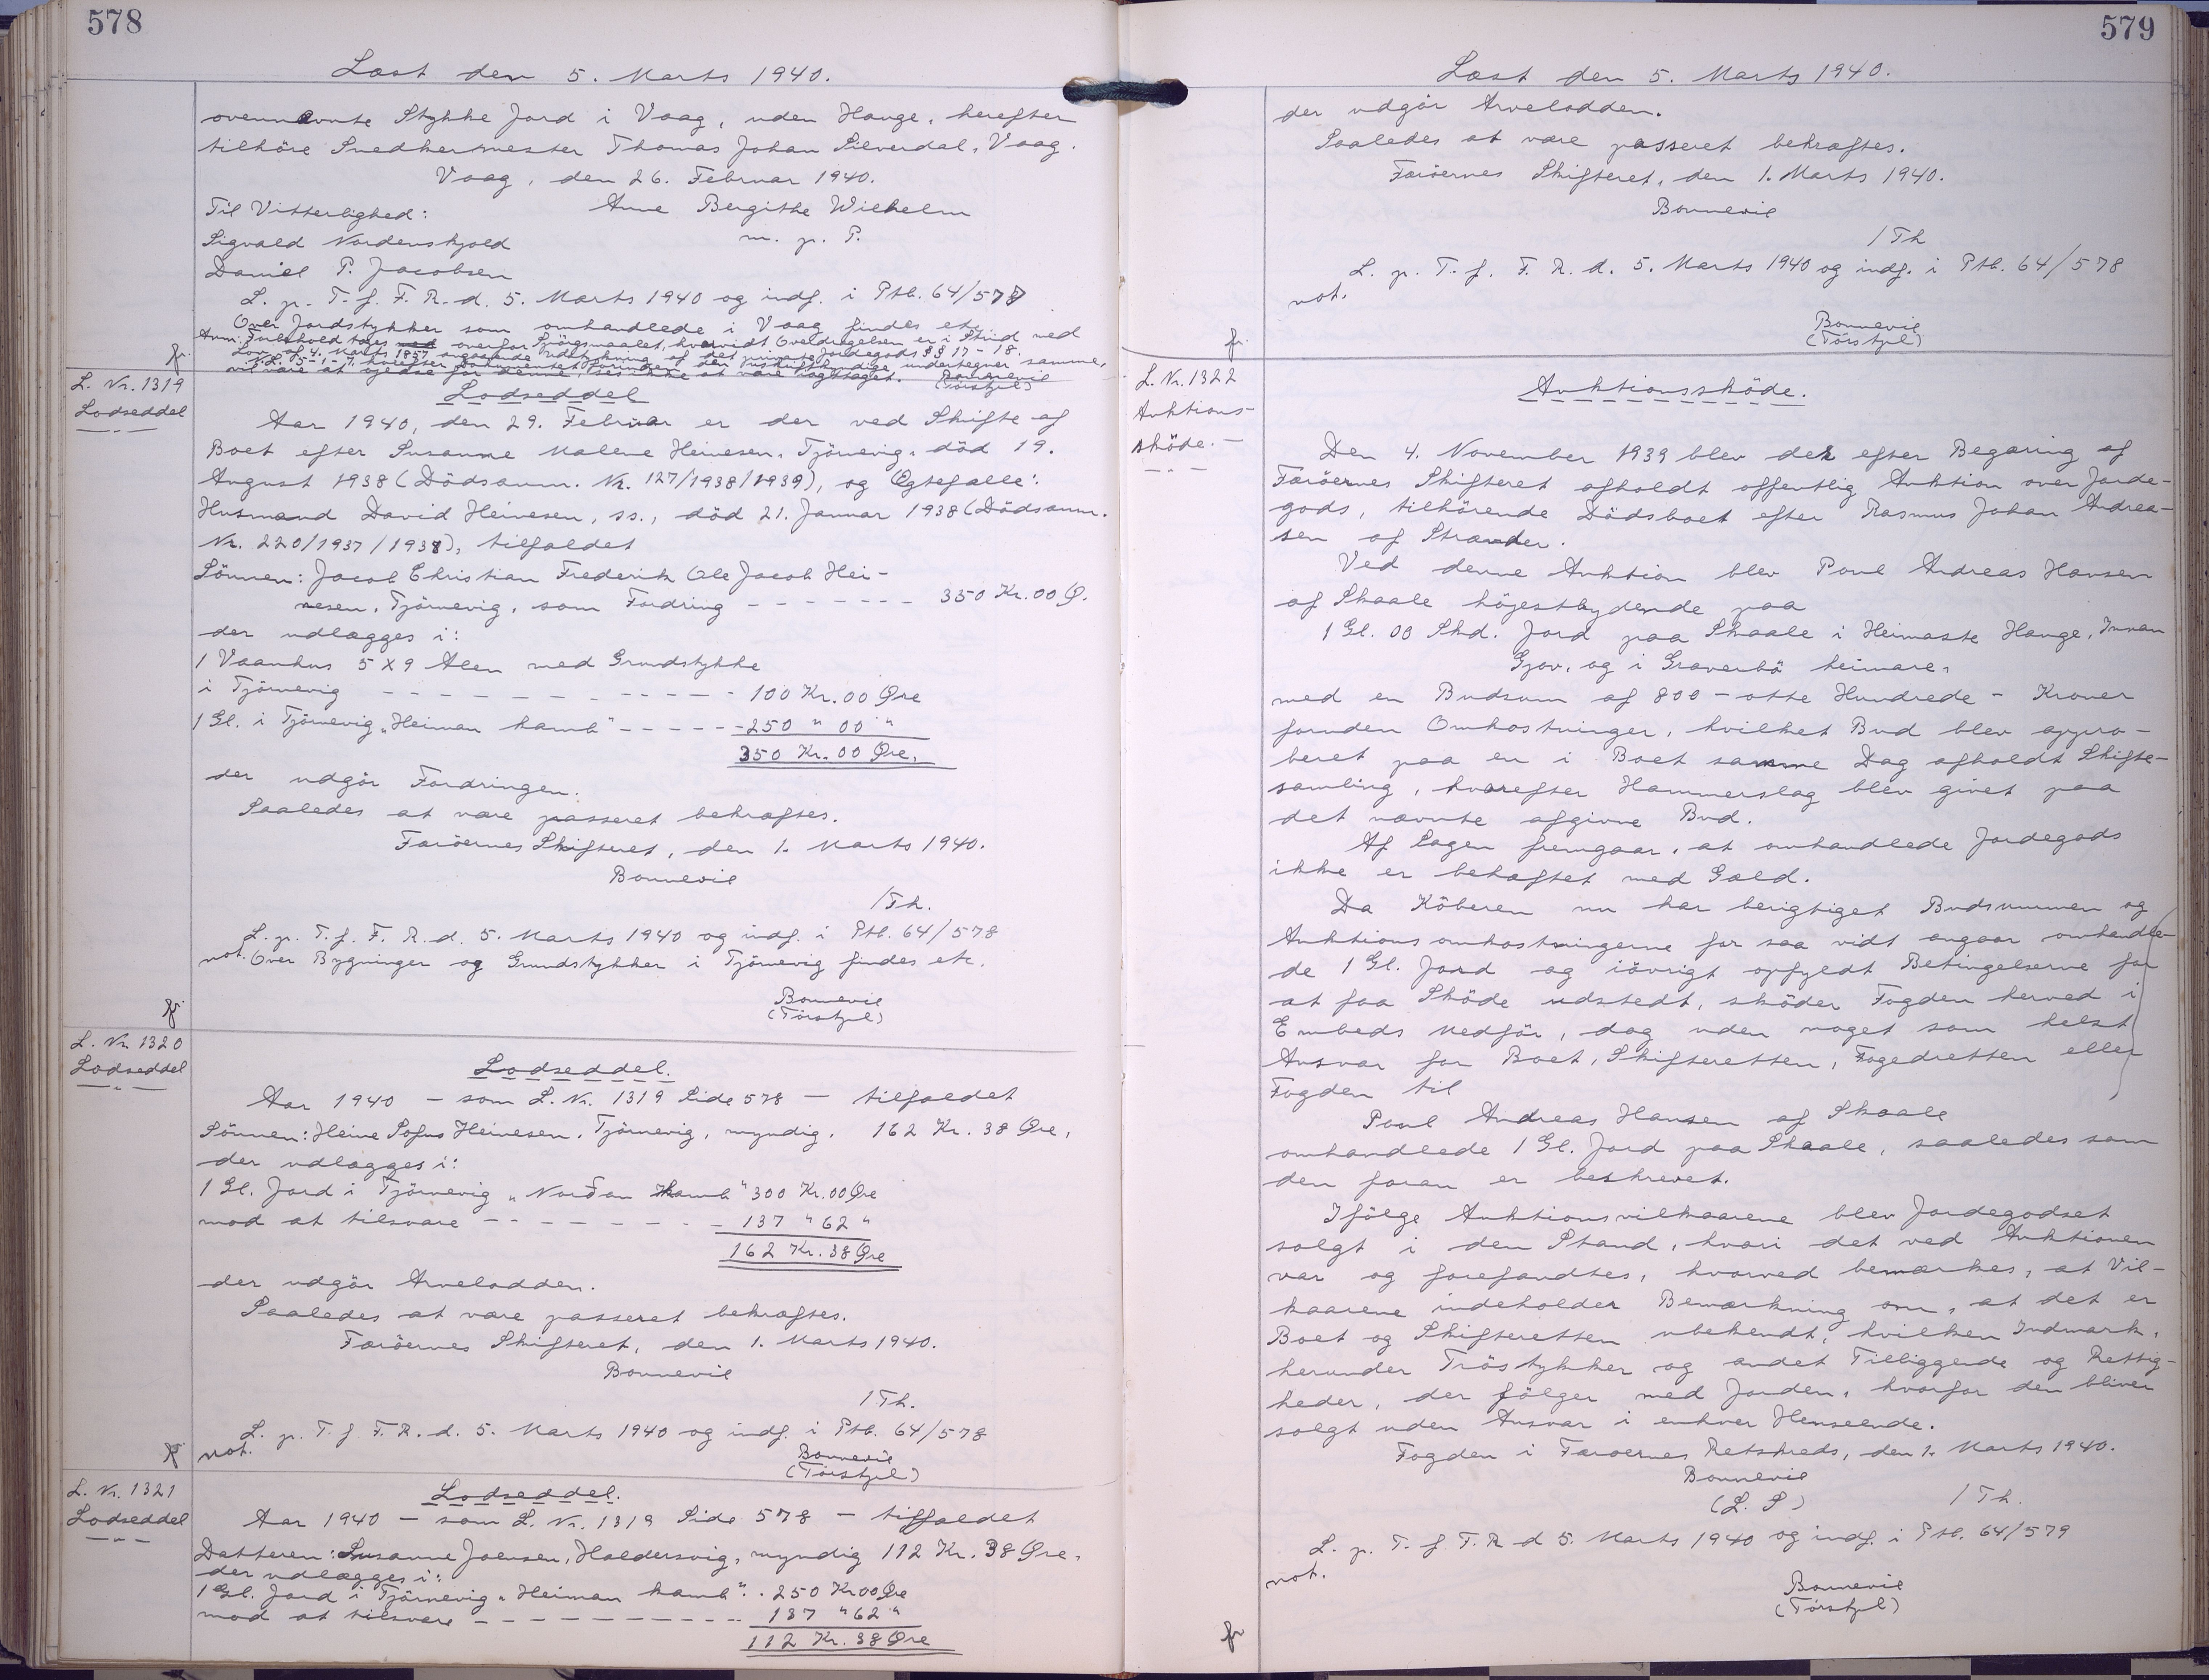 578
Læst den 5. Marts 1940.
ovennævnte Stykke Jord i Vaag, uden Hauge, herefter
tilhöre Snedkermester Thomas Johan Silverdal, Vaag.
Vaag, den 26. Februar 1940.
Til Vitterlighed: Anne Bergithe Wilhelm
Sigvald Nordenskjold m. p. P.
Daniel P. Jacobsen
L. p. T. f. F. R. d. 5. Marts 1940 og indf. i Ptb. 64/578
Over Jordstykker som omhandlede i Vaag findes etc.
Anm: Forbehold tages overfor Spörgsmaalet, hvorvidt Overdragelsen er i Strid med
Lov af 4. Marts 1857 angaaende Udstykning af det private Jordegods §§ 17 - 18.
N.L. 5-1-7, hvorefter Dokumentet forinden den Uskriftkyndige undertegner samme,
vil være at oplæse for denne, ses ikke at være iagttaget. Bonnevie
(Törstjil)
fr.
L. Nr. 1319
Lodseddel
Lodseddel
Aar 1940, den 29. Februar er der ved Skifte af
Boet efter Susanne Malene Heinesen, Tjörnevig, död 19.
August 1938 (Dödsanm. Nr. 127/1938/1939), og Ægtefælle:
Husmand David Heinesen, ss., död 21. Januar 1938 (Dödsanm.
Nr. 220/1937/1938), tilfaldet
Sönnen: Jacob Christian Frederik Ole Jacob Hei-
nesen, Tjörnevig, som Fordring - - - - - - - 350 Kr. 00 Ø.
der udlægges i:
1 Vaanhus 5 x 9 Alen med Grundstykke
i Tjörnevig - - - - - - - - - - - - 100 Kr. 00 Øre
1 Gl. i Tjörnevig „Heiman hamb" - - - - - - 250 " 00 "
350 Kr. 00 Øre.
der udgör Fordringen.
Saaledes at være passeret bekræftes.
Færöernes Skifteret, den 1. Marts 1940.
Bonnevie
/Th.
L. p. T. f. F. R. d. 5. Marts 1940 og indf. i Ptb. 64/578
not. Over Bygninger og Grundstykker i Tjörnevig findes etc.
Bonnevie
(Törstjil)
fr.
L. Nr 1320
Lodseddel
Lodseddel.
Aar 1940 - som L. Nr. 1319 Side 578 - tilfaldet
Sönnen: Heine Sofus Heinesen, Tjörnevig, myndig, 162 Kr. 38 Øre,
der udlægges i:
1 Gl. Jord i Tjörnevig „Norðan hamb" 300 Kr. 00 Øre
mod at tilsvare - - - - - - - - 137 " 62 "
162 Kr. 38 Øre
der udgör Arvelodden.
Saaledes at være passeret bekræftes.
Færöernes Skifteret, den 1. Marts 1940.
Bonnevie
/Th.
L. p. T. f F. R. d. 5. Marts 1940 og indf. i Ptb. 64/578
not.
Bonnevie
(Törstjil)
L. Nr. 1321
Lodseddel
Lodseddel.
Aar 1940 - som L. Nr. 1319 Side 578 - tilfaldet
Datteren: Susanne Joensen, Haldersvig, myndig 112 Kr. 38 Øre,
der udlægges i:
1 Gl. Jord i Tjörnevig „Heiman hamb" . . 250 Kr 00 Øre
mod at tilsvare - - - - - - - - - - 137 " 62 "
112 Kr. 38 Øre
579
Læst den 5. Marts 1940.
der udgör Arvelodden.
Saaledes at være passeret bekræftes.
Færöernes Skifteret, den 1. Marts 1940.
Bonnevie
/Th
L. p. T. f. F. R. d. 5. Marts 1940 og indf. i Ptb. 64/578
not.
Bonnevie
(Törstjil)
fr.
L. Nr. 1322
Auktions-
sköde. -
Auktionssköde.
Den 4. November 1939 blev der efter Begæring af
Færöernes Skifteret afholdt offentlig Auktion over Jorde-
gods, tilhörende Dödsboet efter Rasmus Johan Andrea-
sen af Strænder.
Ved denne Auktion blev Poul Andreas Hansen
af Skaale höjestbydende paa
1 Gl. 00 Skd. Jord paa Skaale i Heimaste Hauge, Innan
Gjov, og i Graverbö heimare,
med en Budsum af 800 - otte Hundrede - Kroner
foruden Omkostninger, hvilket Bud blev appro-
beret paa en i Boet samme Dag afholdt Skifte-
samling, hvorefter Hammerslag blev givet paa
det nævnte afgivne Bud.
Af Sagen fremgaar, at omhandlede Jordegods
ikke er behæftet med Gæld.
Da Köberen nu har berigtiget Budsummen og
Auktionsomkostningerne for saa vidt angaar omhandle-
de 1 Gl. Jord og iövrigt opfyldt Betingelserne for
at faa Sköde udstedt, sköder Fogden herved i
Embeds Medför, dog uden noget som helst
Ansvar for Boet, Skifteretten, Fogedretten eller
Fogden til
Poul Andreas Hansen af Skaale
omhandlede 1 Gl. Jord paa Skaale, saaledes som
den foran er beskrevet.
Ifölge Auktionsvilkaarene blev Jordegodset
solgt i den Stand, hvori det ved Auktionen
var og forefandtes, hvorved bemærkes, at Vil-
kaarene indeholder Bemærkning om, at det er
Boet og Skifteretten ubekendt, hvilken Indmark,
herunder Tröstykker og andet Tilliggende og Rettig-
heder, der fölger med Jorden, hvorfor den bliver
solgt uden Ansvar i enhver Henseende.
Fogden i Færöernes Retskreds, den 1. Marts 1940.
Bonnevie
(L. S) /Th.
L. p. T. f F. R d 5. Marts 1940 og indf. i Ptb. 64/579
not.
Bonnevie
(Törstjil)
fr